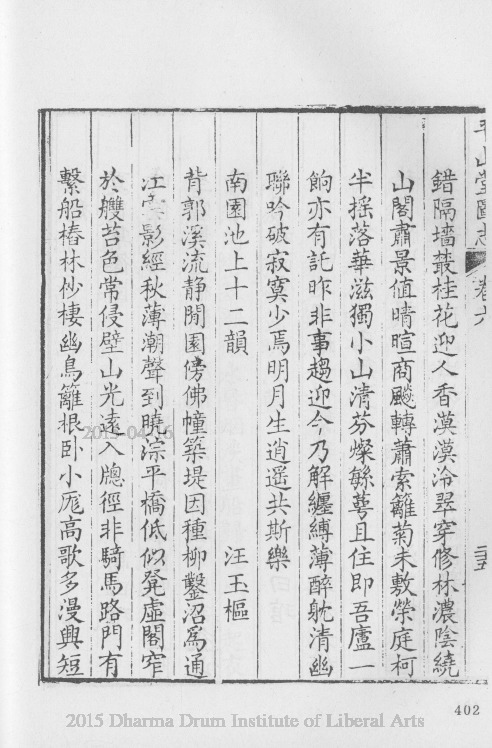 平山堂圖志 卷六
錯隔墻叢桂花迎人香漠漠泠翠穿修林濃陰繞
山閣肅景值晴暄商飇轉蕭索籬菊未敷榮庭柯
半摇落華滋獨小山清芬燦繇萼且住即吾廬一
餉亦有託昨非事趨迎今乃解纏縛薄醉躭清幽
聯吟破寂寞少焉明月生逍遥共斯樂
南園池上十二韻 汪玉樞
背郭溪流静閒園傍佛幢築堤因種柳鑿沼爲通
江 影經秋薄潮聲到曉淙平橋低似凳虛閣窄
於艭苔色常侵壁山光遠入牕徑非騎馬路門有
繫船樁林杪棲幽鳥籬根卧小厖高歌多漫興短
402
2015 Dharma Drum Institute of Liberal Arts